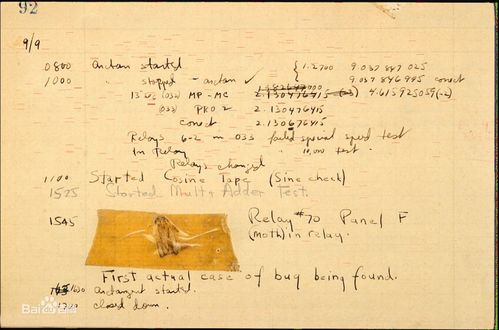 92
9/9
0800 Antan started
1000 " stopped - antan ✓ { 1.2700 9.037 847 025
9.037 846 995 conect
13"uc (032) MP-MC 2.130476415 (-3) 4.615925059(-2)
(033) PRO 2 2.130476415
conect 2.130676415
Relays 6-2 in 033 failed special speed test
in Relay 10,000 test.
Relays changed
1100 Started Cosine Tape (Sine check)
1525 Started Mult+Adder Test.
1545 Relay #70 Panel F
(moth) in relay.
First actual case of bug being found.
1630 antangent started.
1700 closed down.
Bai 百科